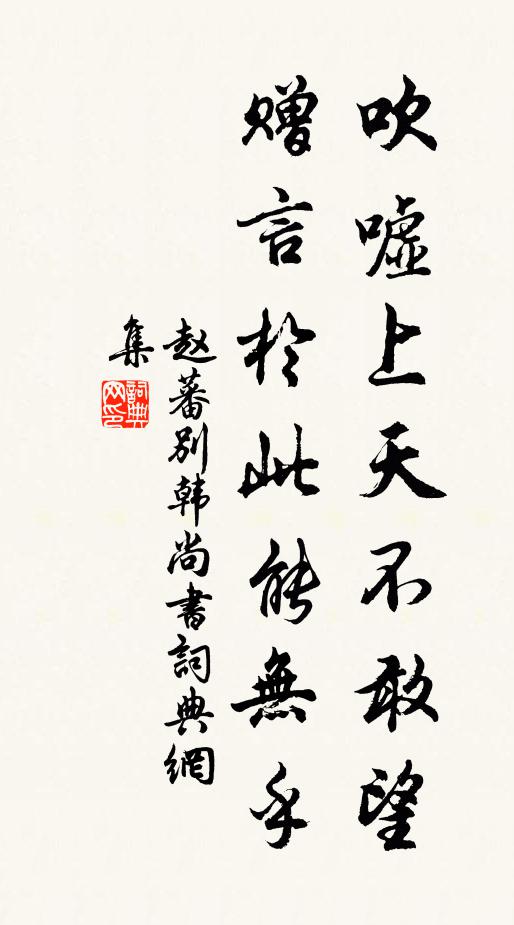 吹嘘上天不敢望
赠言於此能無乎
赵蕃别韩尚書詞典網
集
詞典
网印